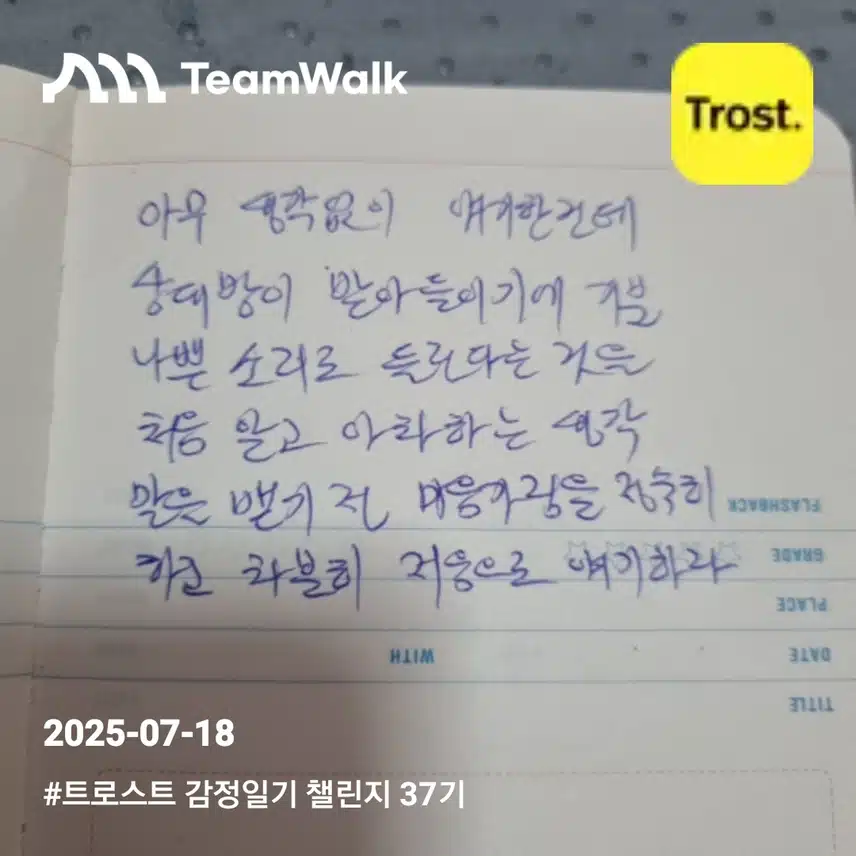 TeamWalk
Trost.
아무 생각없이 얘기한건데
상대방이 받아들이기에 기분
나쁜 소리로 들린다는 것을
처음 알고 아차하는 생각
말은 뱉기 전 마음가짐을 정숙히
하고 차분히 저음으로 얘기하라
FLASHBACK
GRADE
PLACE
WITH
DATE
TITLE
2025-07-18
#트로스트 감정일기 챌린지 37기